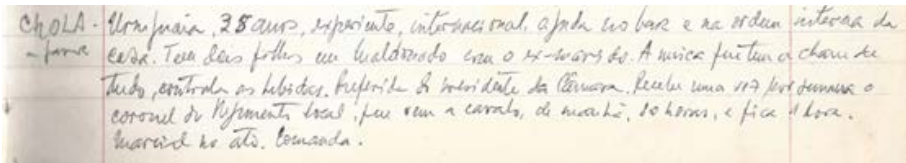 CHOLA - Uruguaia, 38 anos, experiente, internacional, ajuda no bar e na ordem interna da
- fama casa. Tem dois filhos em Maldonado com o ex-marido. A única que tem a chave de
tudo, controla as bebidas. Preferida do presidente da Câmara. Recebe uma vez por semana o
coronel do Regimento local, que vem a cavalo, de manhã, 10 horas, e fica 1 hora.
Marcial no ato. Comanda.